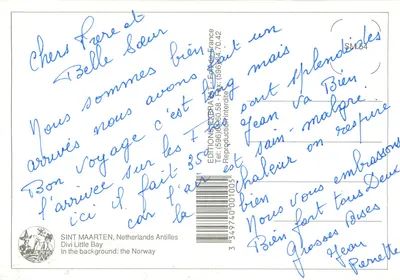 Chers Frere et
Belle Sœur
Nous sommes bien
arrivés nous avons fait un
Bon voyage c'est long mais
l'arrivée sur les sont splendides
ici il fait 35 Jean va Bien
car l'air est sain - malgré
la chaleur on respire
bien
Nous vous embrassons
Bien fort tous Deux
Grosses Bises
Jean
Pierrette
SINT MAARTEN, Netherlands Antilles
Divi Little Bay
In the background: the Norway
Reproduction interdite
3 349740 001005